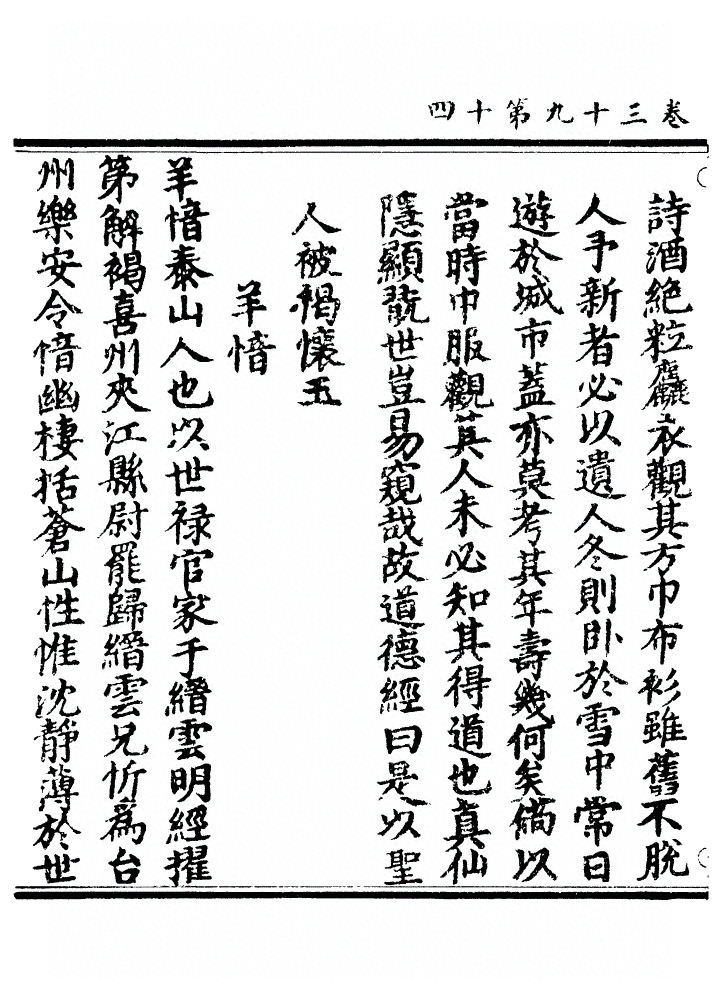 卷三十九第十四
詩酒絶粒麤衣觀其方巾布衫雖舊不脫
人予新者必以遺人冬則卧於雪中常日
遊於城市蓋亦莫考其年壽幾何矣倘以
當時巾服觀其人未必知其得道也真仙
隱顯翫世豈易窺哉故道德經曰是以聖
人被褐懷玉
羊愔
羊愔泰山人也以世禄官家于縉雲明經擢
第解褐喜州夾江縣尉罷歸縉雲兄忻為台
州樂安令愔幽棲括蒼山性惟沈靜薄於世